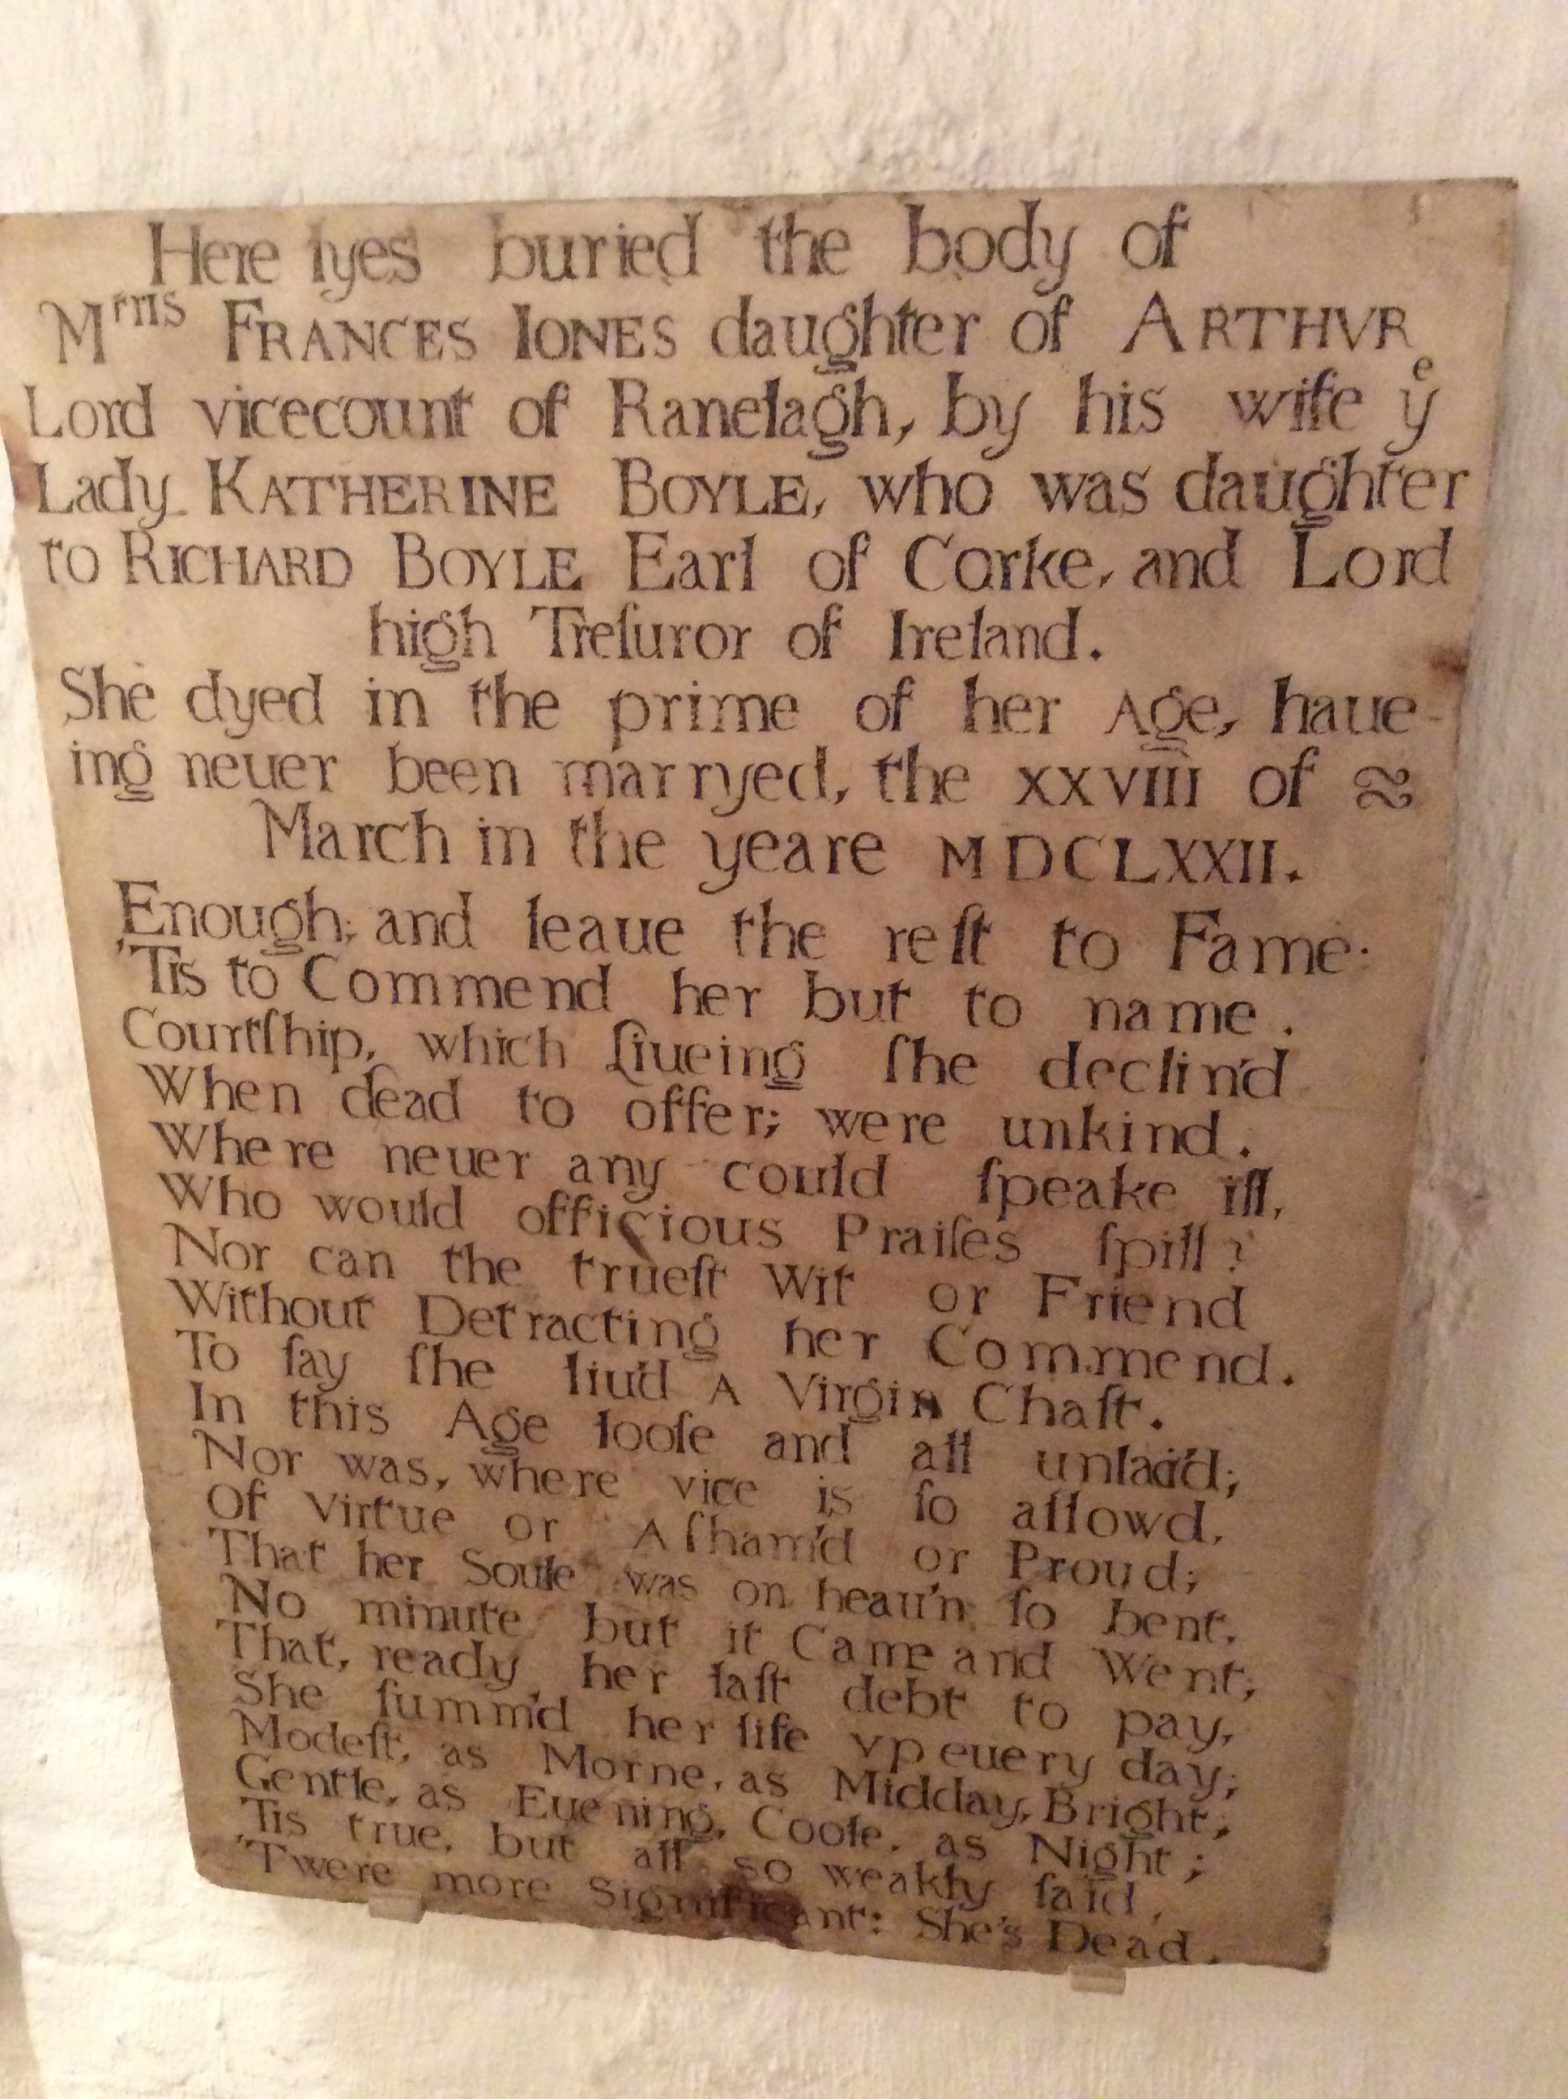 Here lyes buried the body of
Mʳⁱˢ FRANCES IONES daughter of ARTHVR
Lord vicecount of Ranelagh, by his wife yᵉ
Lady KATHERINE BOYLE, who was daughter
to RICHARD BOYLE Earl of Corke, and Lord
high Treſuror of Ireland.
She dyed in the prime of her Age, haue-
ing neuer been marryed, the XXVIII of
March in the yeare MDCLXXII.
Enough; and leaue the reſt to Fame.
'Tis to Commend her but to name.
Courtſhip, which liueing ſhe declin'd
When dead to offer; were unkind.
Where neuer any could ſpeake ill,
Who would officious Praiſes ſpill?
Nor can the trueſt Wit or Friend
Without Detracting her Commend.
To ſay ſhe liu'd A Virgin Chaſt.
In this Age looſe and all unlac'd;
Nor was, where vice is ſo allowd,
Of Virtue or Aſham'd or Proud;
That her Soule was on heau'n ſo bent,
No minute but it Came and Went;
That, ready her laſt debt to pay,
She ſumm'd her life vp euery day;
Modeſt, as Morne, as Midday, Bright;
Gentle, as Euening, Coole, as Night;
'Tis true, but all so weakly ſaid,
'Twere more Significant: She's Dead.